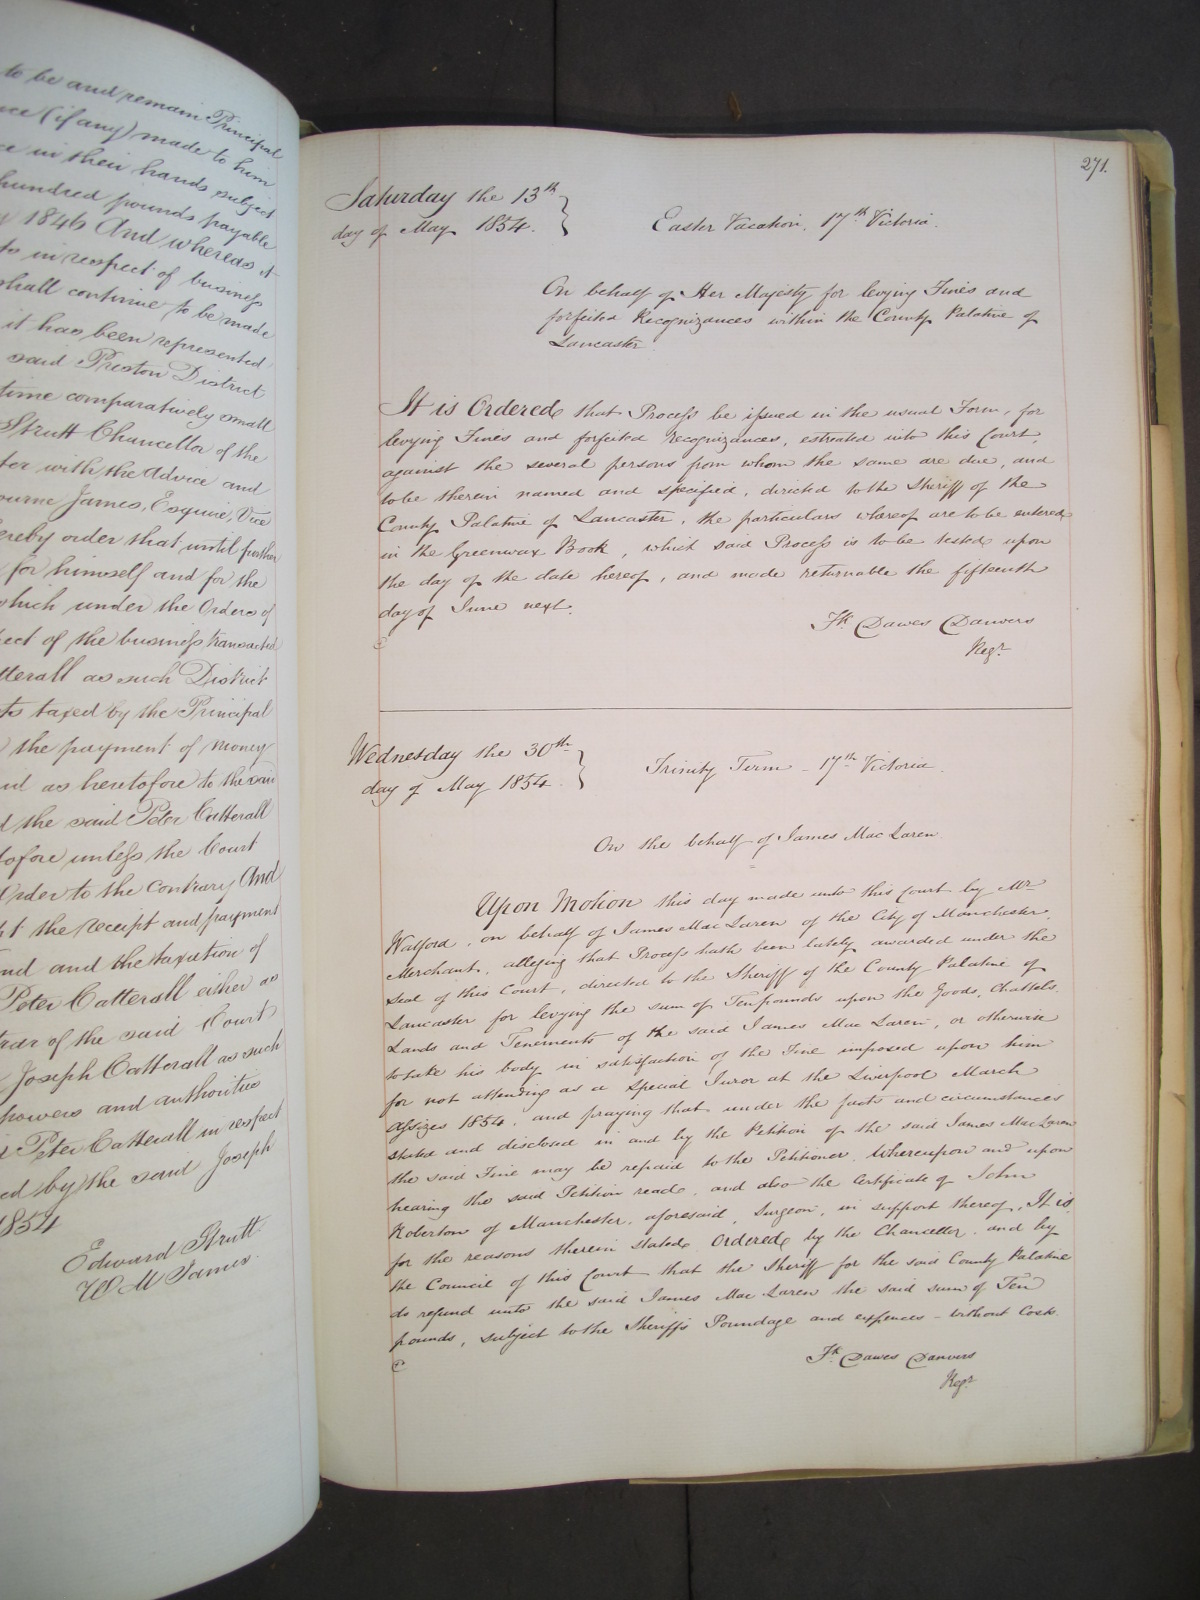 to be and remain Principal
(if any) made to him
in their hands subject
hundred pounds payable
1846 And whereas it
in respect of business
shall continue to be made
it has been represented
said Preston District
time comparatively small
Strutt Chancellor of the
with the Advice and
James, Esquire, Vice
order that until further
for himself and for the
which under the Orders of
of the business transacted
as such District
taxed by the Principal
the payment of money
as heretofore to the said
the said Peter Catterall
unless the Court
Order to the contrary And
the receipt and payment
and the taxation of
Peter Catterall either as
of the said Court
Joseph Catterall as such
powers and authorities
Peter Catterall in respect
by the said Joseph
1854
Edward Strutt
W M James
271.
Saturday the 13th
day of May 1854.
Easter Vacation, 17th Victoria.
On behalf of Her Majesty for levying Fines and
forfeited Recognizances within the County Palatine of
Lancaster
It is Ordered that Process be issued in the usual Form, for
levying Fines and forfeited recognizances, estreated into this Court,
against the several persons from whom the same are due, and
to be therein named and specified, directed to the Sheriff of the
County Palatine of Lancaster, the particulars whereof are to be entered
in the Greenwax Book, which said Process is to be tested upon
the day of the date hereof, and made returnable the fifteenth
day of June next.
Fk Dawes Danvers
Regr
Wednesday the 30th
day of May 1854.
Trinity Term - 17th Victoria.
On the behalf of James Mac Laren
Upon Motion this day made unto this Court by Mr
Walford, on behalf of James Mac Laren of the City of Manchester,
Merchant, alleging that Process hath been lately awarded under the
Seal of this Court, directed to the Sheriff of the County Palatine of
Lancaster for levying the sum of Ten pounds upon the Goods, Chattels,
Lands and Tenements of the said James Mac Laren, or otherwise
to take his body in satisfaction of the Fine imposed upon him
for not attending as a Special Juror at the Liverpool March
Assizes 1854, and praying that under the facts and circumstances
stated and disclosed in and by the Petition of the said James Mac Laren
the said Fine may be repaid to the Petitioner Whereupon and upon
hearing the said Petition read, and also the Certificate of John
Roberton of Manchester, aforesaid, Surgeon, in support thereof, It is
for the reasons therein stated Ordered by the Chancellor and by
the Council of this Court that the Sheriff for the said County Palatine
do refund unto the said James Mac Laren the said sum of Ten
pounds, subject to the Sheriff's Poundage and expences - without Costs.
Fk Dawes Danvers
Regr